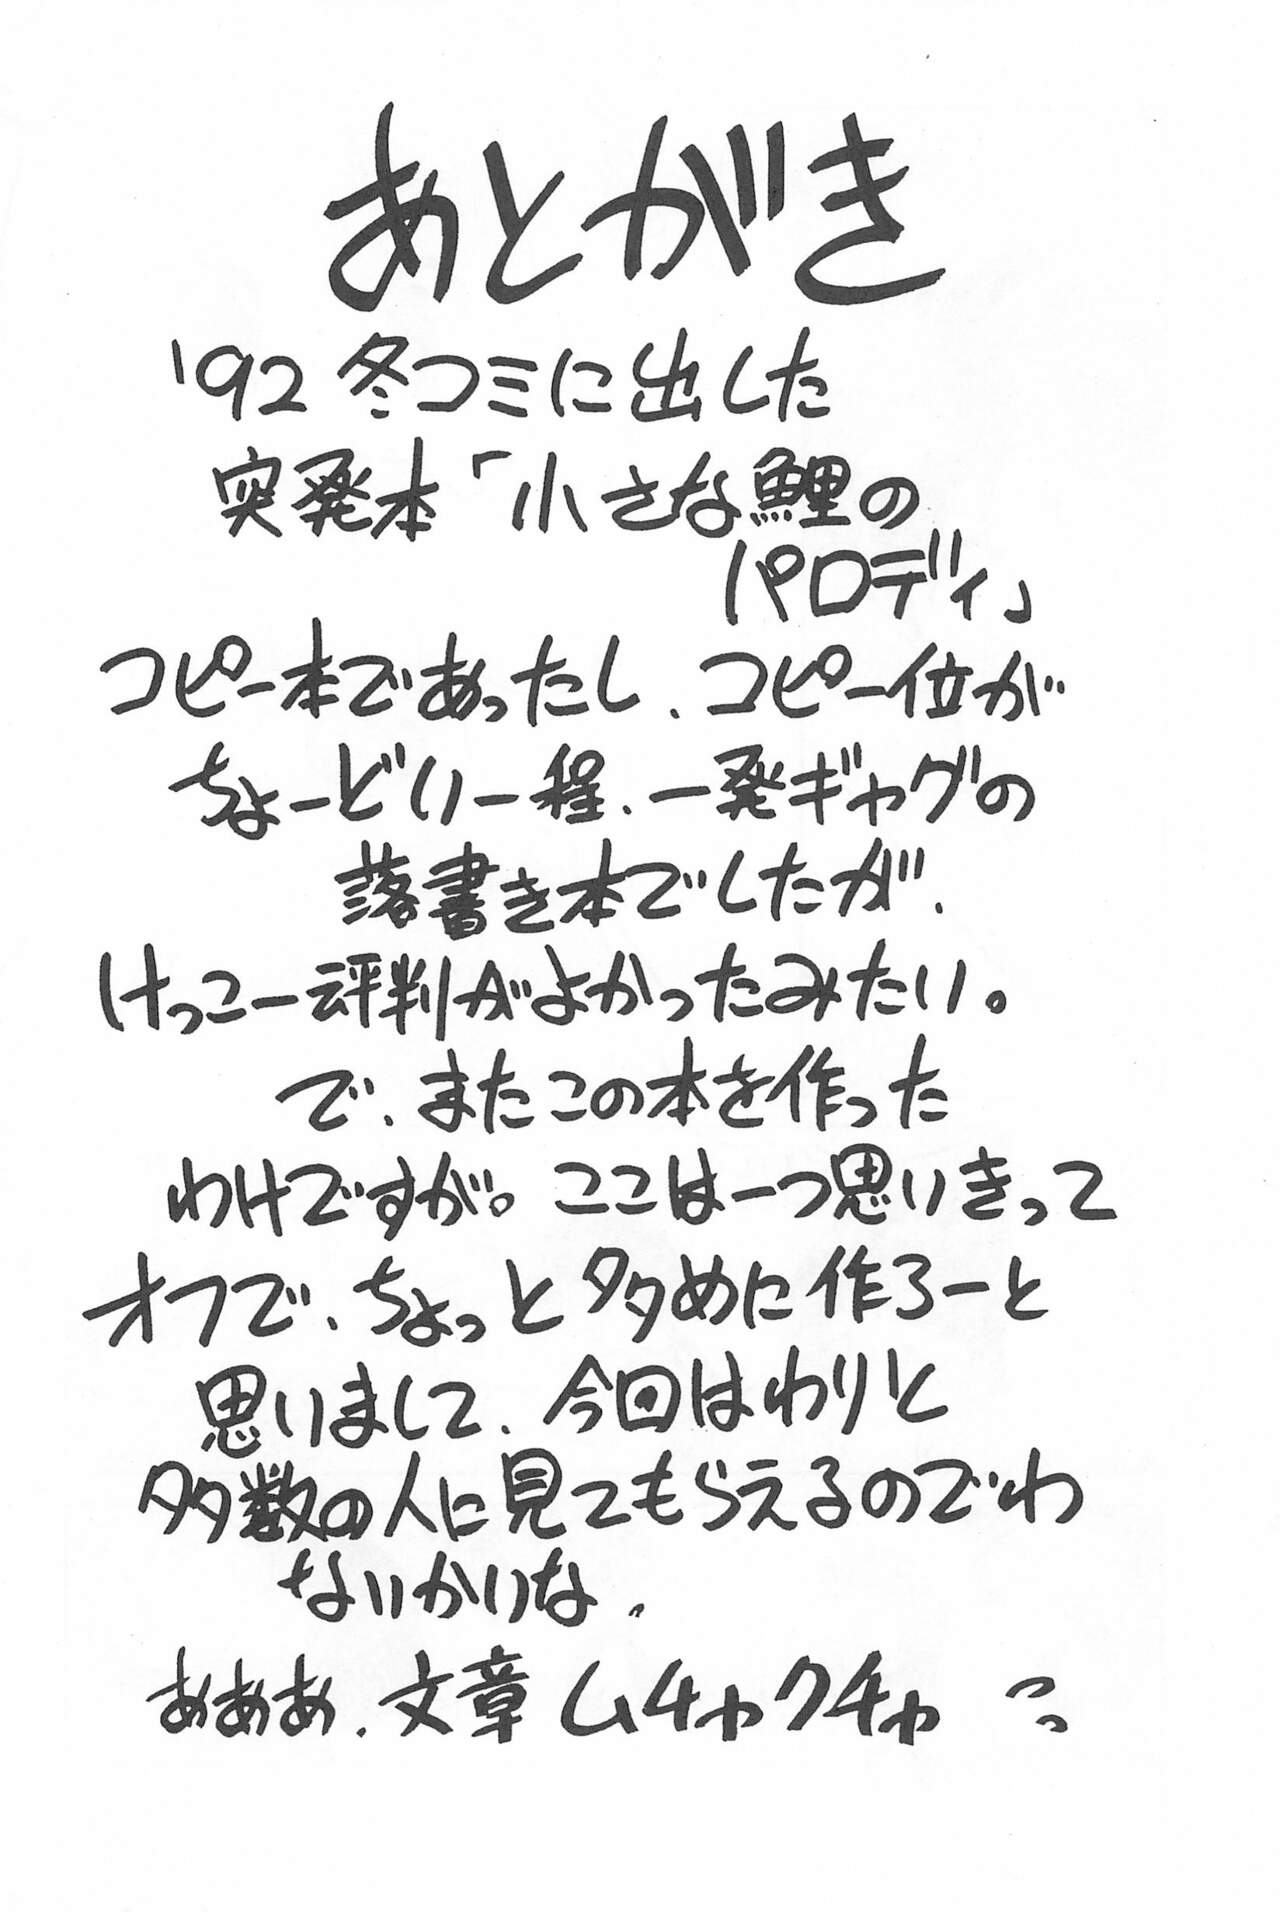 あとがき
'92 冬コミに出した
突発本「小さな鯉の
パロディ」
コピー本であったし、コピー位が
ちょーどいー程、一発ギャグの
落書き本でしたが、
けっこー評判がよかったみたい。
で、またこの本を作った
わけですが。ここは一つ思いきって
オフで、ちょっと多めに作ろーと
思いまして、今回はわりと
多数の人に見てもらえるのでわ
ないかいな。
あああ、文章ムチャクチャ